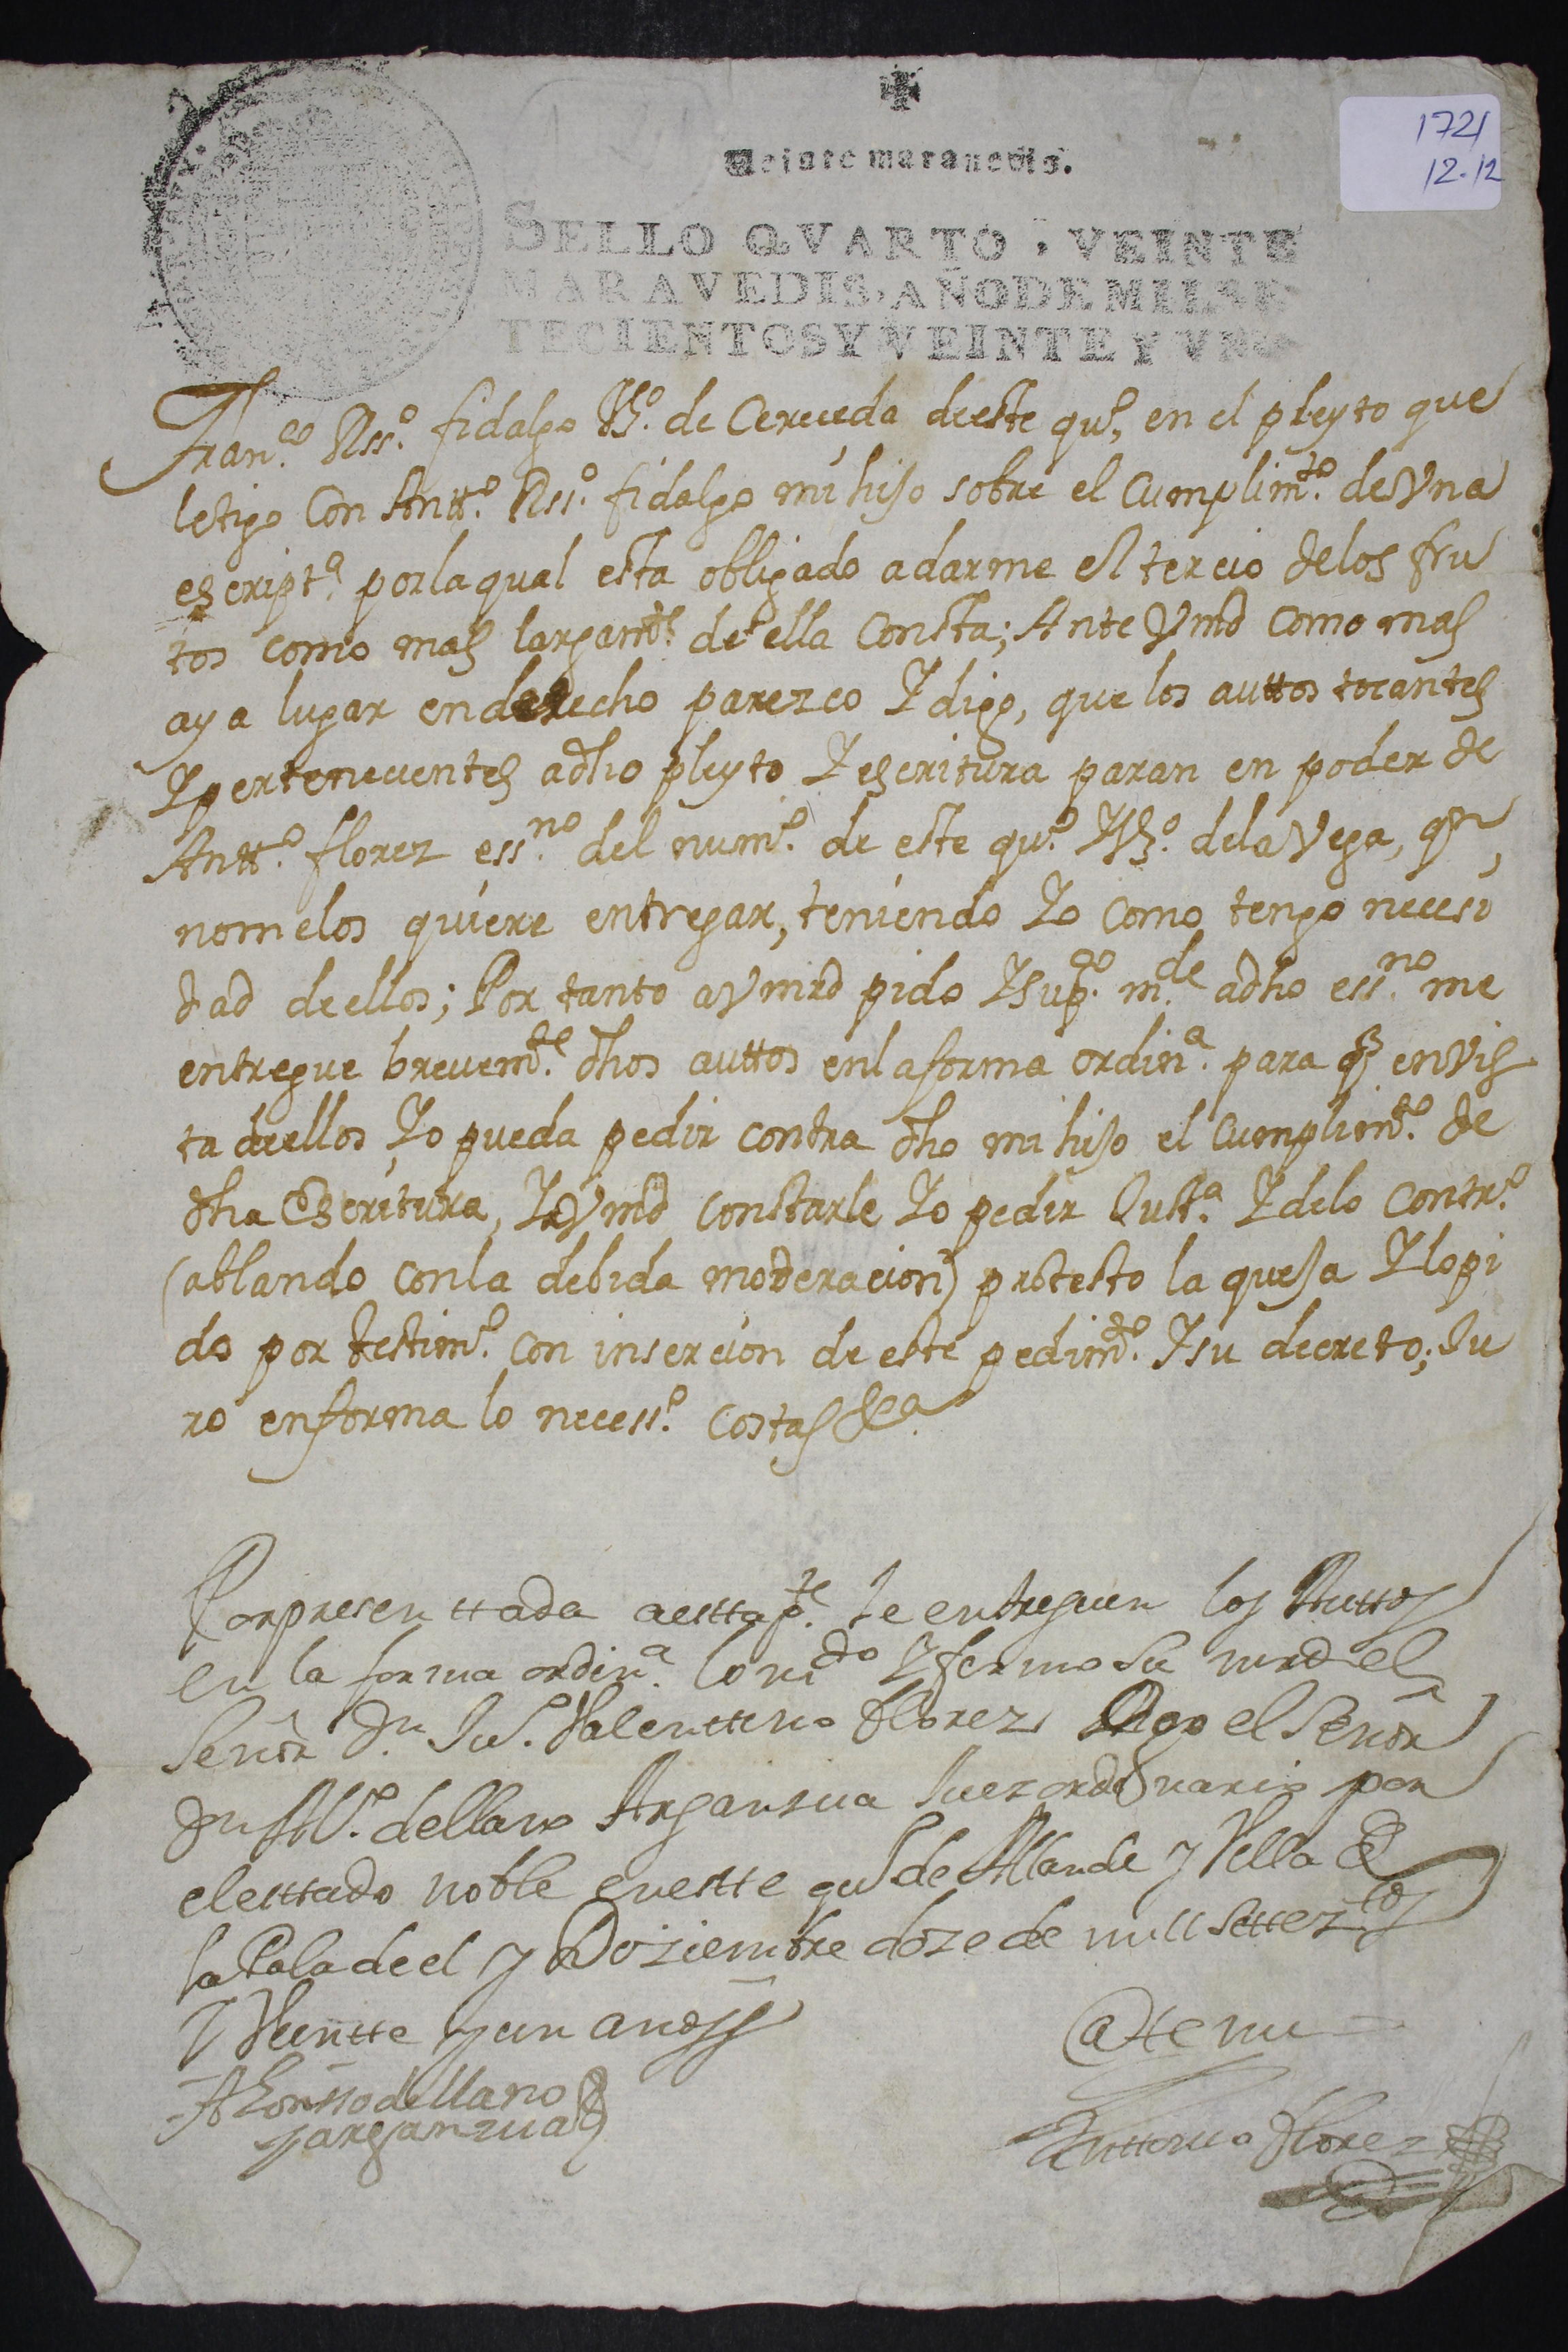 1721
12-12
Veinte maravedis.
SELLO QVARTO, VEINTE
MARAVEDIS, AÑO DE MIL SE
TECIENTOS Y VEINTE Y VNO
Fran.co Rss.o fidalgo Vz.o de Cereceda de este qu.o, en el pleyto que
letigo Con Antt.o Rss.o fidalgo mi hijo sobre el Cumplim.to de Vna
escript.a por la qual esta obligado a darme el tercio de los fru
tos como mas largam.te de ella Consta; Ante Vmd como mas
aya lugar en derecho parezco Y digo, que los auttos tocantes
Y pertenecientes a dho pleyto Y escritura paran en poder de
Antt.o florez ess.no del num.o de este qu.o Y Vz.o de la Vega, qn
no me los quiere entregar, teniendo Yo como tengo necesi
dad de ellos; Por tanto a Vmrd pido Y sup.co m.de a dho ess.no me
entregue brevem.te dhos auttos en la forma ordin.a para q en Vis
ta de ellos Yo pueda pedir contra dho mi hijo el Cumplim.to de
dha Escritura, Y a Vmd constarle Yo pedir Just.a Y de lo Contr.o
(ablando con la debida moderacion) protesto la queja Y lo pi
do por testim.o con insercion de este pedim.to Y su decreto; Ju
ro en forma lo necess.o Costas &a
Por presenttada a estta p.te se entreguen los Auttos
en la forma ordin.a lo m.do Y fermo su mrd el
Señor Dn Ju.o Valenttin Florez Digo el Señor
Dn Al.o de llano Arganzua Juez ordinario por
el esttado noble en estte qu.o de Allande y Vella de
la Pola de el y Diziembre doze de mill settez.tos
Y Veintte y un anos
Alonsso de llano
y arganzua
Ante mi
Anttonio Florez